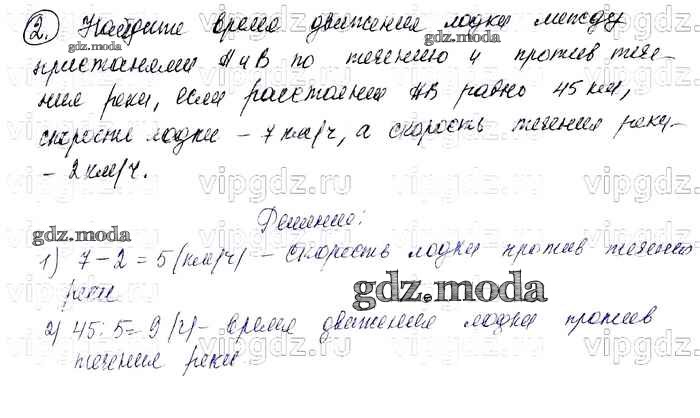 2. Найдите время движения лодки между
пристанями А и В по течению и против тече-
ния реки, если расстояние АВ равно 45 км,
скорость лодки - 7 км/ч, а скорость течения реки -
- 2 км/ч.
Решение:
1) 7 - 2 = 5 (км/ч) - скорость лодки против течения
реки
2) 45 : 5 = 9 (ч) - время движения лодки против
течения реки
gdz.moda
gdz.moda
gdz.moda
gdz.moda
gdz.moda
vipgdz.ru